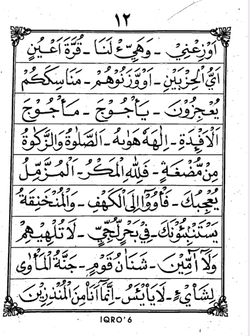 ١٢
اَوْزِعْنِيْ - وَهَيِّءْ لَنَا - قُرَّةَ اَعْيُنٍ
اَيُّ الْحِزْبَيْنِ - اَوْ وَزَنُوْهُمْ - مَنَاسِكَكُمْ
يُعْجِزُوْنَ - يَأْجُوْجَ - مَأْجُوْجَ
الْاَفْئِدَةِ - اِلٰهَهٗ هَوٰىهُ - الصَّلٰوةَ وَالزَّكٰوةَ
مِنْ مُّضْغَةٍ - فَلِلّٰهِ الْمَكْرُ - الْمُزَّمِّلُ
يُعْجِبُكَ - فَأْوٗۤا اِلَى الْكَهْفِ - وَالْمُنْخَنِقَةُ
يَسْتَنْبِئُوْنَكَ - فِيْ بَحْرٍ لُّجِّيٍّ - لَا تُلْهِيْهِمْ
وَلَا اٰمِّيْنَ - شَنَاٰنُ قَوْمٍ - جَنَّةُ الْمَأْوٰى
لِشَايْءٍ - لَا يَايْئَسُ - اِنَّمَا اَنَا مِنَ الْمُنْذِرِيْنَ
IQRO' 6